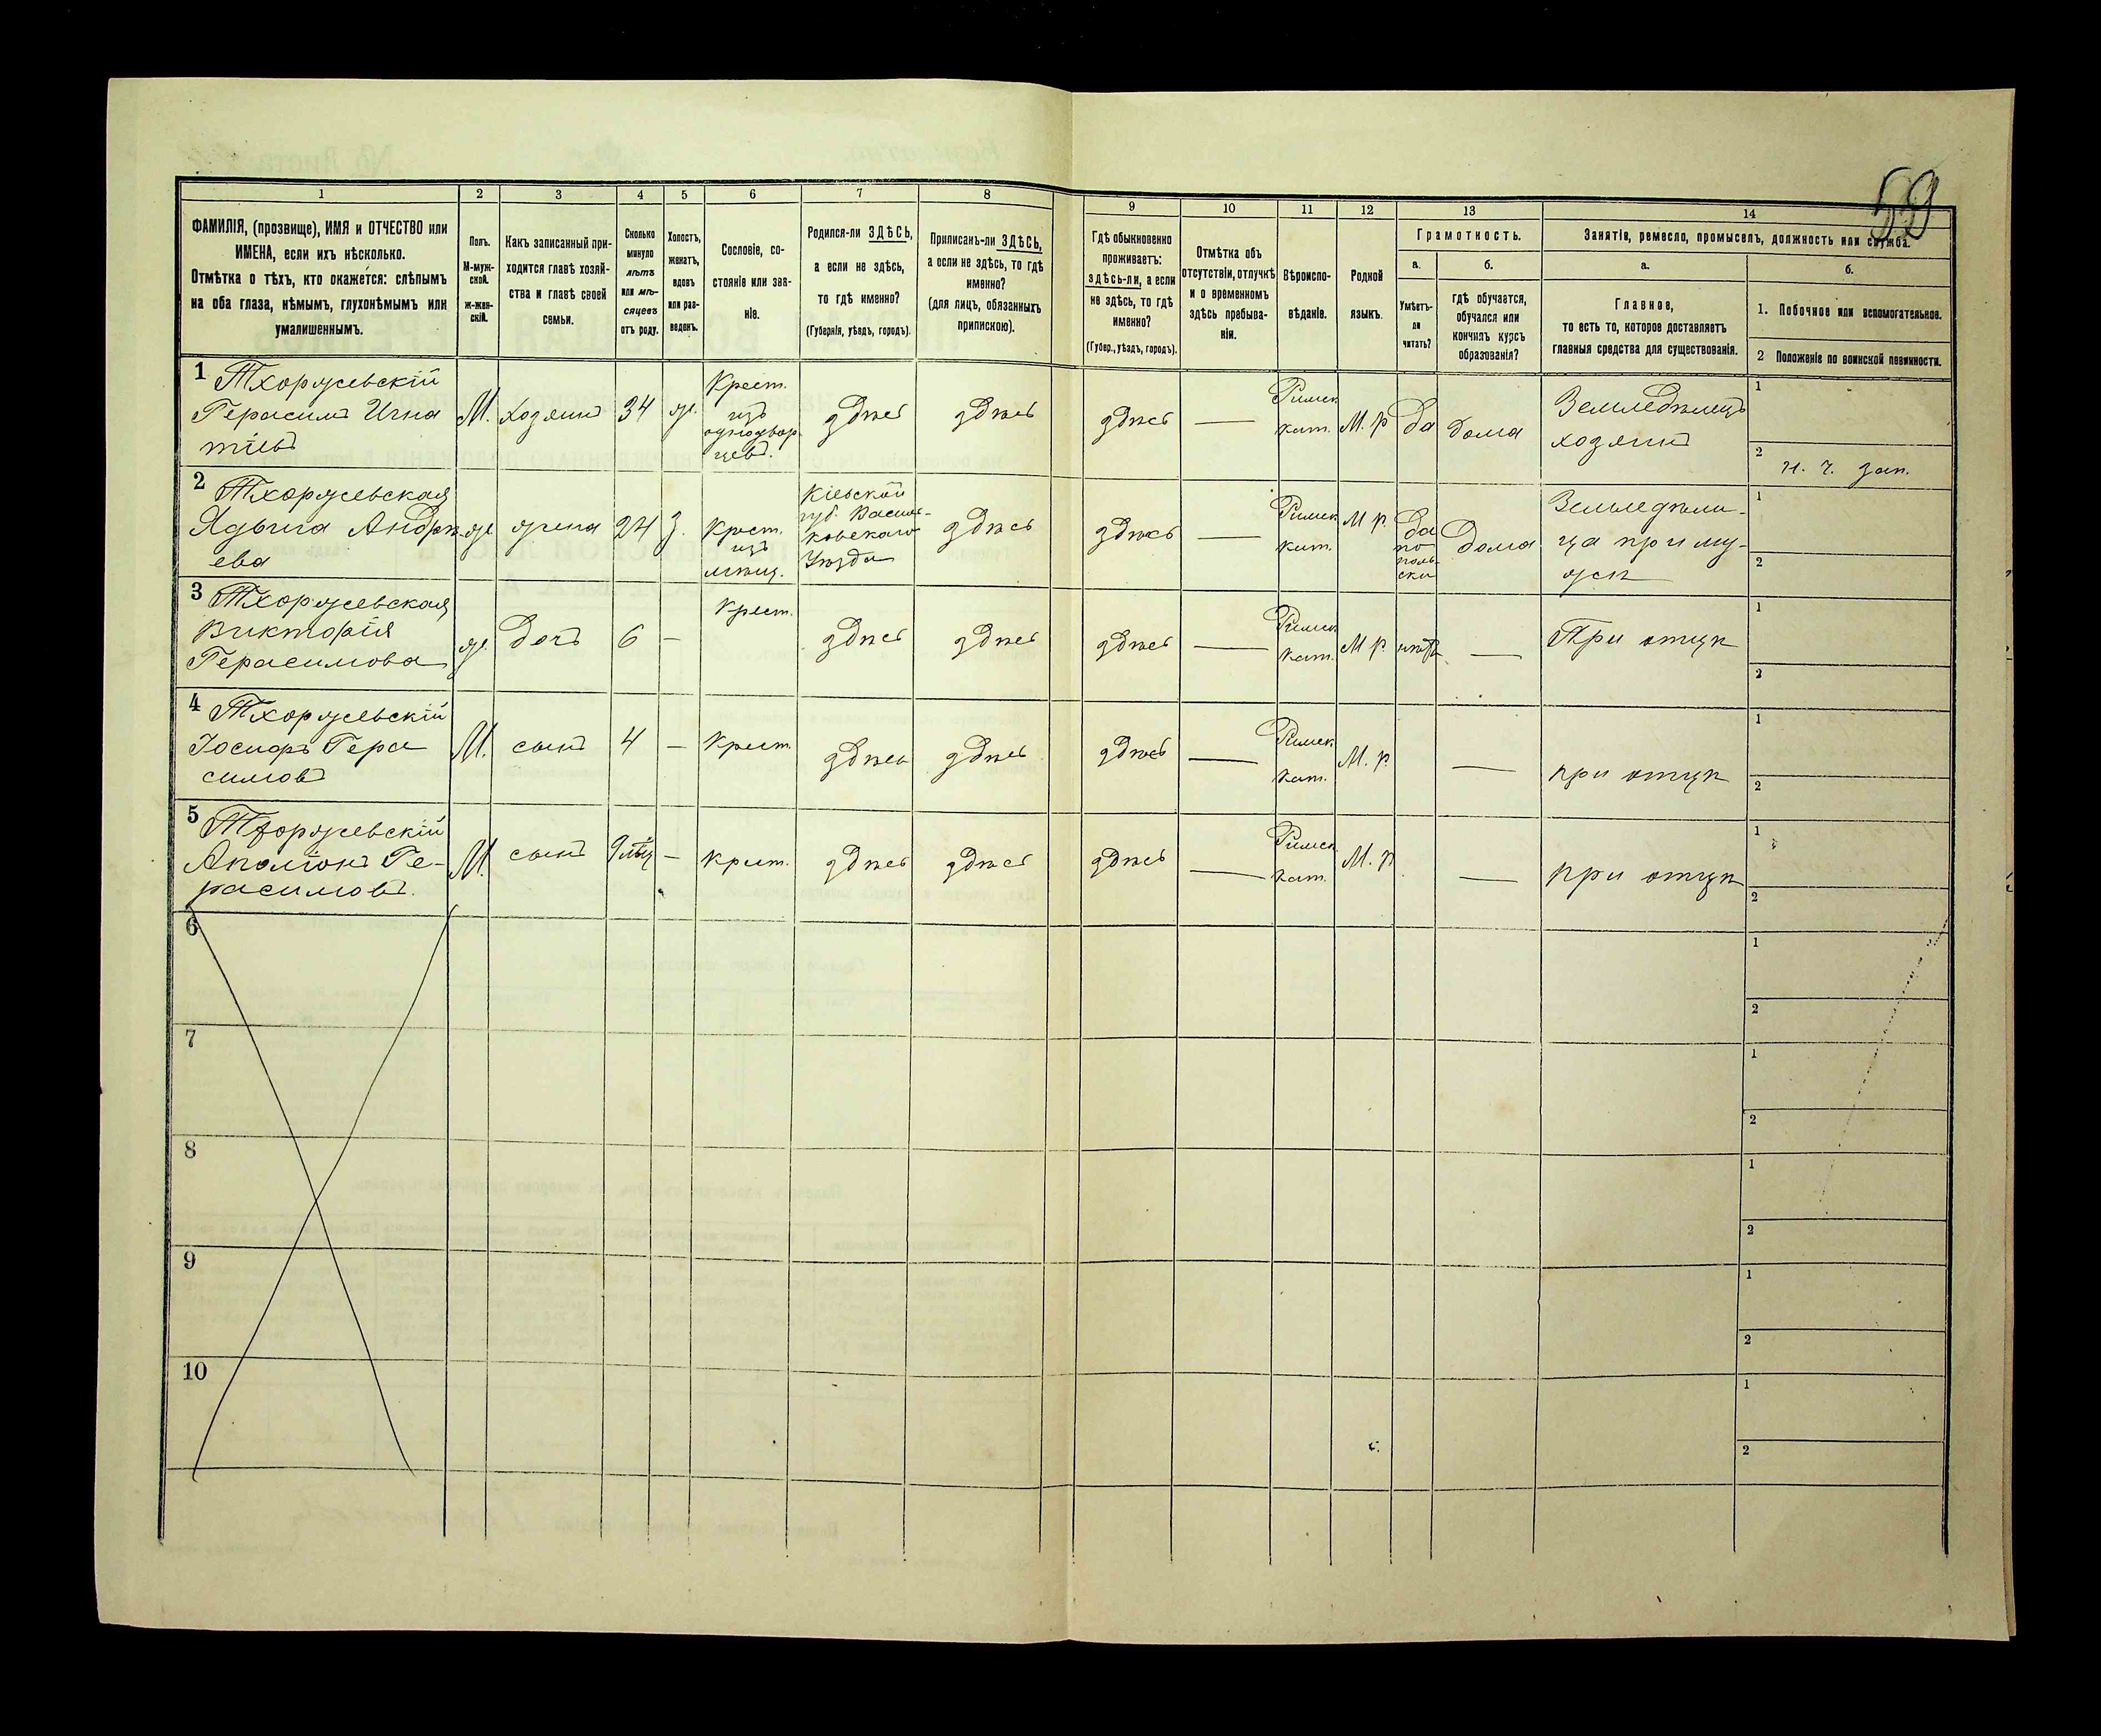 59
1 2 3 4 5 6 7 8 9 10 11 12 13 14
ФАМИЛІЯ, (прозвище), ИМЯ и ОТЧЕСТВО или
ИМЕНА, если ихъ нѣсколько.
Отмѣтка о тѣхъ, кто окажется: слѣпымъ
на оба глаза, нѣмымъ, глухонѣмымъ или
умалишеннымъ.
Полъ.
М-муж-
ской.
ж-жен-
скій.
Какъ записанный при-
ходится главѣ хозяй-
ства и главѣ своей
семьи.
Сколько
минуло
лѣтъ
или мѣ-
сяцевъ
отъ роду.
Холостъ,
женатъ,
вдовъ
или раз-
веденъ.
Сословіе, со-
стояніе или зва-
ніе.
Родился-ли ЗДѢСЬ,
а если не здѣсь,
то гдѣ именно?
(Губернія, уѣздъ, городъ).
Приписанъ-ли ЗДѢСЬ,
а если не здѣсь, то гдѣ
именно?
(для лицъ, обязанныхъ
припискою).
Гдѣ обыкновенно
проживаетъ:
здѣсь-ли, а если
не здѣсь, то гдѣ
именно?
(Губер., уѣздъ, городъ).
Отмѣтка объ
отсутствіи, отлучкѣ
и о временномъ
здѣсь пребыва-
ніи.
Вѣроиспо-
вѣданіе.
Родной
языкъ.
Грамотность.
а.
Умѣетъ-
ли
читать?
б.
гдѣ обучается,
обучался или
кончилъ курсъ
образованія?
Занятіе, ремесло, промыселъ, должность или служба.
а.
Главное,
то есть то, которое доставляетъ
главныя средства для существованія.
б.
1. Побочное или вспомогательное.
2 Положеніе по воинской повинности.
1 Тхоржевскій
Герасимъ Игна
тіевъ
М.
хозяинъ
34
ж.
Крест.
изъ
однодвор
цевъ.
здѣсь
здѣсь
здѣсь
—
Римск
кат.
М. р
да
дома
Земледѣлецъ
хозяинъ
1
2 н. ч. зап.
2 Тхоржевская
Ядвига Андрѣ
ева
ж.
жена
24
з.
Крест.
изъ
мѣщ.
Кіевской
губ. Василь-
ковскаго
Уѣзда
здѣсь
здѣсь
—
Римск
кат.
М р.
да
по
поль
ски
Дома
Земледѣли-
ца при му-
жѣ
1
2
3 Тхоржевская
Викторія
Герасимова
ж.
дочь
6
—
Крест.
здѣсь
здѣсь
здѣсь
—
Римск
кат.
М р.
нѣтъ
—
При отцѣ
1
2
4 Тхоржевскій
Іосифъ Гера
симовъ
М.
сынъ
4
—
крест.
здѣсь
здѣсь
здѣсь
—
Римск
кат.
М. р.
—
при отцѣ
1
2
5 Тхоржевскій
Аполіонъ Ге-
расимовъ.
М.
сынъ
9 мѣц
—
крест.
здѣсь
здѣсь
здѣсь
—
Римск
кат.
М. р
—
при отцѣ
1
2
6
1
2
7
1
2
8
1
2
9
1
2
10
1
2